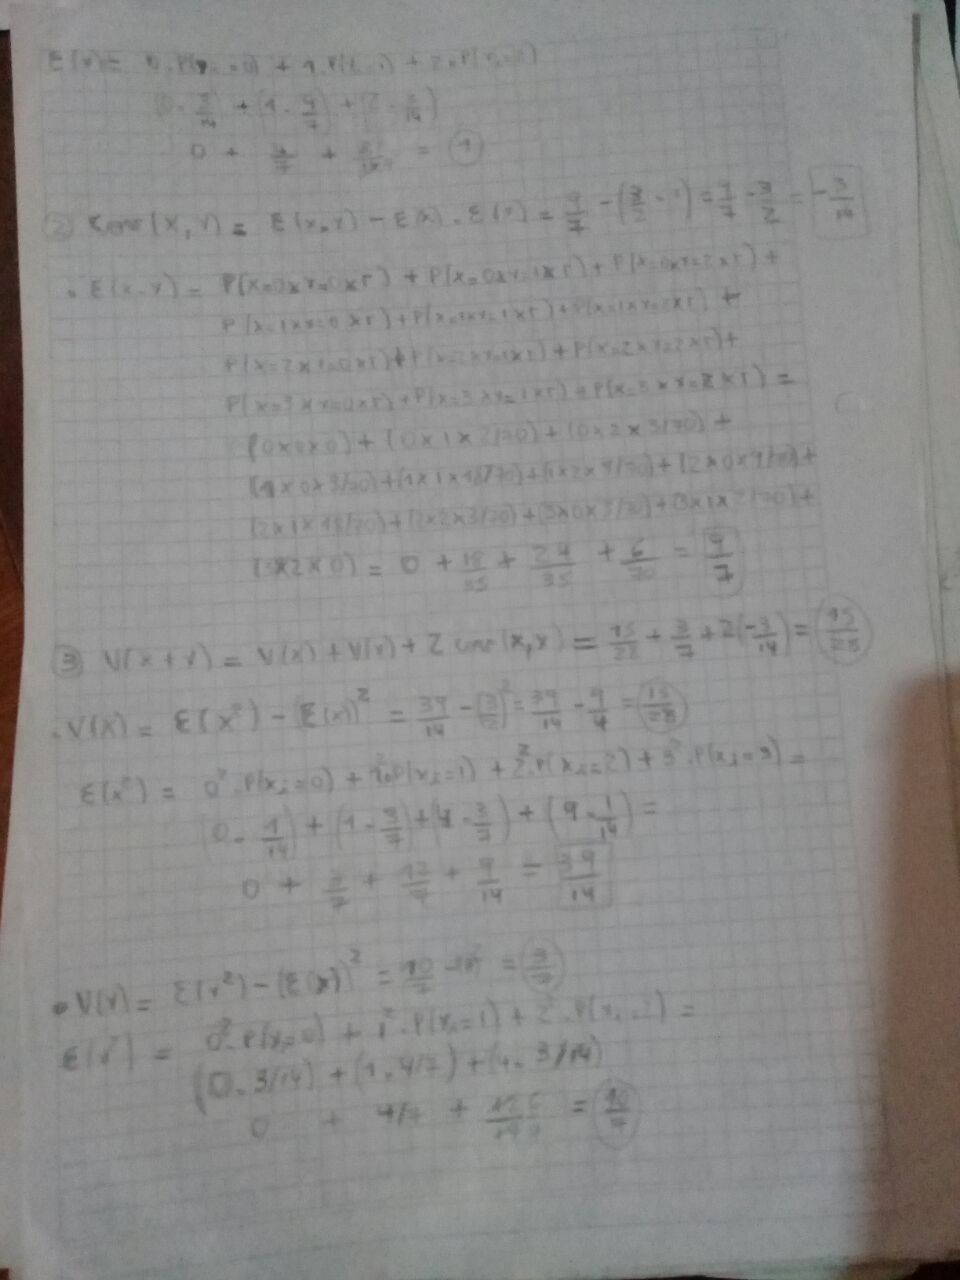 E(Y) = 0.P(Yi=0) + 1.P(Yi=1) + 2.P(Yi=2)
(0.3/14) + (1.4/7) + (2.3/14)
0 + 4/7 + = 1
② cov(X,Y) = E(X,Y) - E(X).E(Y) = 9/7 - (3/2 . 1) = 9/7 - 3/2 = -3/14
. E(X.Y) = P(X=0xY=0xr) + P(X=0xY=1xr) + P(X=0xY=2xr) +
P(X=1xY=0xr) + P(X=1xY=1xr) + P(X=1xY=2xr) +
P(X=2xY=0xr) + P(X=2xY=1xr) + P(X=2xY=2xr) +
P(X=3xY=0xr) + P(X=3xY=1xr) + P(X=3xY=2xr) =
(0x0x0) + (0x1x2/70) + (0x2x3/70) +
(1x0x3/70) + (1x1x18/70) + (1x2x9/70) + (2x0x9/70) +
(2x1x18/70) + (2x2x3/70) + (3x0x3/70) + (3x1x2/70) +
(3x2x0) = 0 + 18/35 + 24/35 + 6/70 = 9/7
③ V(X+Y) = V(X) + V(Y) + 2 cov(X,Y) = 15/28 + 3/7 + 2(-3/14) = 15/28
. V(X) = E(X²) - (E(X))² = 39/14 - (3/2)² = 39/14 - 9/4 = 15/28
E(X²) = 0².P(Xi=0) + 1².P(Xi=1) + 2².P(Xi=2) + 3².P(Xi=3) =
(0.1/14) + (1.3/7) + (4.3/7) + (9.1/14) =
0 + 3/7 + 12/7 + 9/14 = 39/14
• V(Y) = E(Y²) - (E(Y))² = 10/7 - 1² = 3/7
E(Y²) = 0².P(Yi=0) + 1².P(Yi=1) + 2².P(Yi=2) =
(0.3/14) + (1.4/7) + (4.3/14)
0 + 4/7 + = 10/7